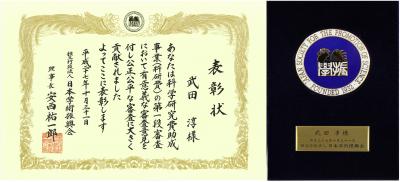 表彰状
武田 淳様
あなたは科学研究費助成
事業(科研費)の第一段審査
において有意義な審査意見を
付し公正公平な審査に大きく
貢献されました
よってここに表彰します
平成二十七年十月三十一日
独立行政法人日本学術振興会
理事長 安西祐一郎
JAPAN SOCIETY FOR THE PROMOTION OF SCIENCE
FOUNDED 1932
学術
武田 淳様
日本学術振興会